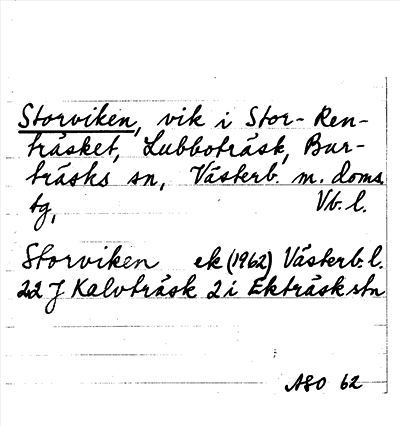 Storviken, vik i Stor-Ren-
träsket, Lubboträsk, Bur-
träsks sn, Västerb. m. doms.
tg, Vb. l.
Storviken ek (1962) Västerb. l.
22 J Kalvträsk 2 i Ekträsk stn
ASO 62